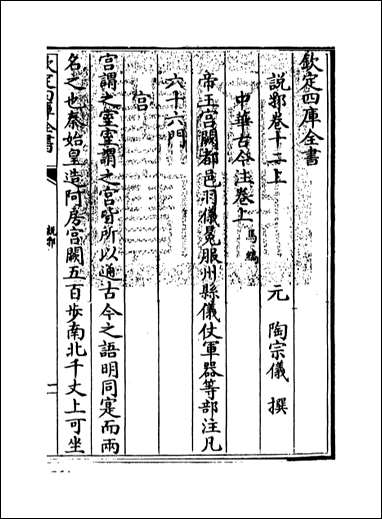 欽定四庫全書
說郛卷十二上
元 陶宗儀 撰
中華古今注卷上 馬縞
帝王宫闕都邑羽儀冕服州縣儀仗軍器等部注凡
六十六門
宫
宫謂之室室謂之宫皆所以通古今之語明同寔而兩
名之也秦始皇造阿房宫闕五百步南北千丈上可坐
欽定四庫全書
說郛